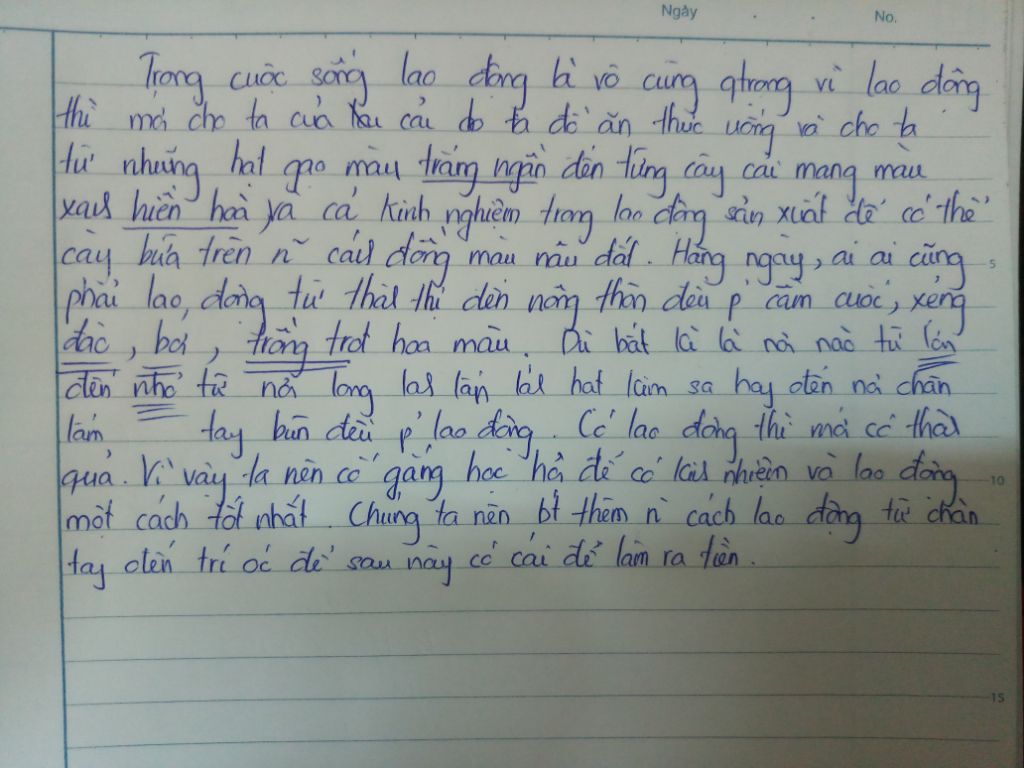 Ngày . . No.
Trong cuộc sống lao động là vô cùng qtrong vì lao động
thì mới cho ta của cải do ta đồ ăn thức uống và cho ta
từ những hạt gạo màu trắng ngần đến từng cây cải mang màu
xanh hiền hoà và cả kinh nghiệm trong lao động sản xuất để có thể
cày bừa trên n~ cánh đồng màu nâu đất. Hàng ngày, ai ai cũng 5
phải lao động từ thành thị đến nông thôn đều p' cầm cuốc, xẻng
đào, bới, trồng trọt hoa màu. Dù bất kì là nơi nào từ lớn
đến nhỏ từ nơi long lanh lấp lánh hạt kim sa hay đến nơi chân
lấm tay bùn đều p' lao động. Có lao động thì mới có thành
quả. Vì vậy ta nên cố gắng học hỏi để có nhiệm và lao động 10
một cách tốt nhất. Chúng ta nên bt thêm n~ cách lao động từ chân
tay đến trí óc để sau này có cái để làm ra tiền.
15